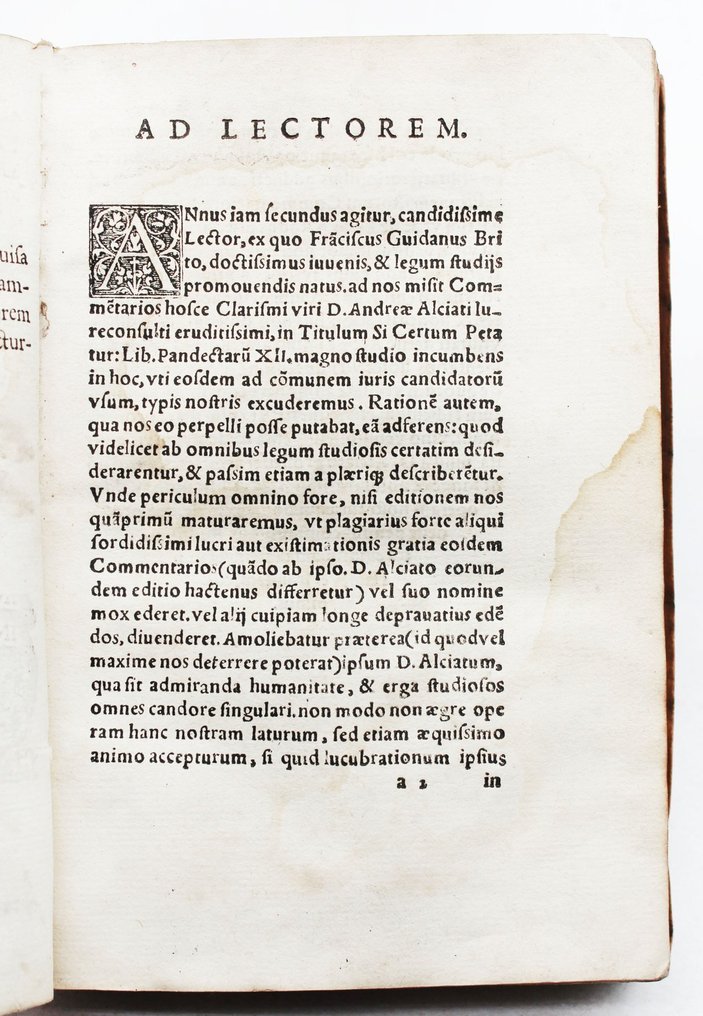 uisa
am-
rem
ctur-
AD LECTOREM.
ANnus iam secundus agitur, candidissime
Lector, ex quo Frãciscus Guidanus Bri
to, doctissimus iuuenis, & legum studijs
promouendis natus. ad nos misit Com=
mẽtarios hosce Clarismi viri D. Andreæ Alciati Iu-
reconsulti eruditissimi, in Titulum Si Certum Peta
tur: Lib. Pandectarũ XII. magno studio incumbens
in hoc, vti eosdem ad cõmunem iuris candidatorũ
vsum, typis nostris excuderemus. Rationẽ autem,
qua nos eo perpelli posse putabat, eã adferens: quod
videlicet ab omnibus legum studiosis certatim desi-
derarentur, & passim etiam a plæriqꝫ describerẽtur.
Vnde periculum omnino fore, nisi editionem nos
quãprimũ maturaremus, vt plagiarius forte aliqui
sordidissimi lucri aut existimationis gratia eosdem
Commentarios (quãdo ab ipso. D. Alciato eorun-
dem editio hactenus differretur) vel suo nomine
mox ederet. vel alij cuipiam longe deprauatius edẽ
dos, diuenderet. Amoliebatur præterea (id quod vel
maxime nos deterrere poterat) ipsum D. Alciatum,
qua sit admiranda humanitate, & erga studiosos
omnes candore singulari. non modo non ægre ope
ram hanc nostram laturum, sed etiam æquissimo
animo accepturum, si quid lucubrationum ipsius
a 2 in